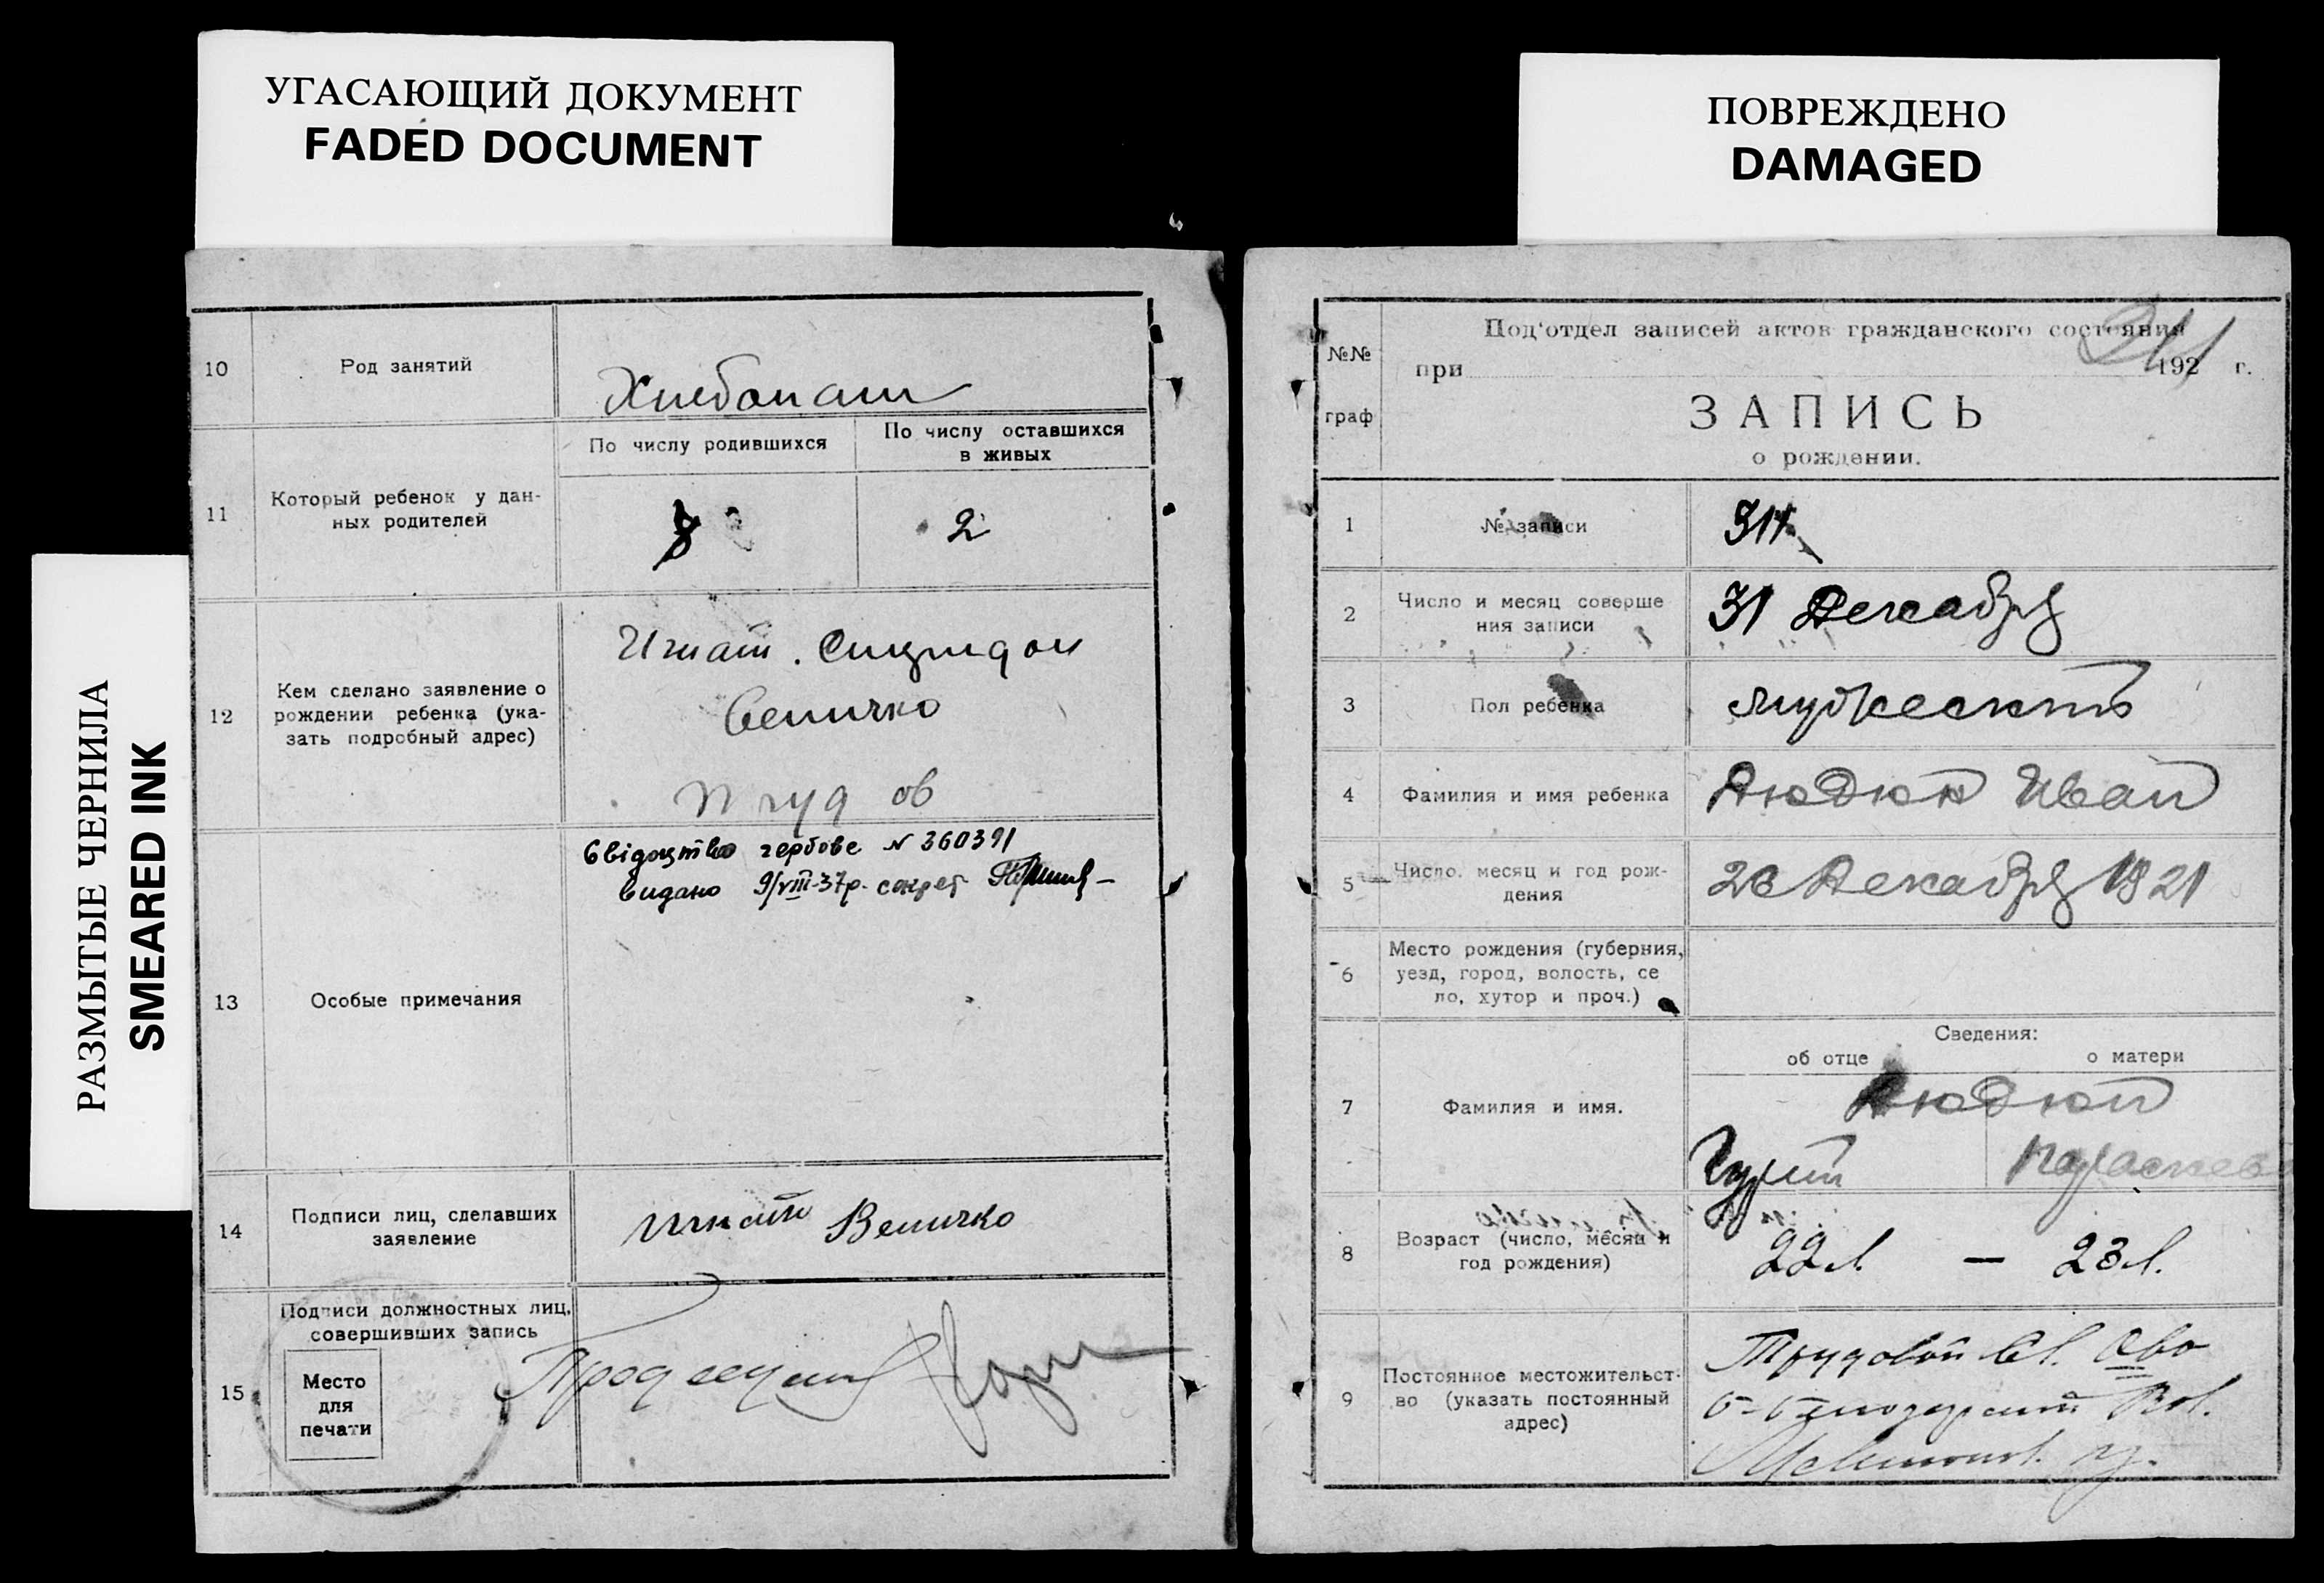 УГАСАЮЩИЙ ДОКУМЕНТ
FADED DOCUMENT
РАЗМЫТЫЕ ЧЕРНИЛА
SMEARED INK
10 Род занятий
Хлебопаш
11 Который ребенок у дан-
ных родителей
По числу родившихся
По числу оставшихся
в живых
2
12 Кем сделано заявление о
рождении ребенка (ука-
зать подробный адрес)
Игнат. Спиридон
Величко
13 Особые примечания
Свідоцтво гербове N 360391
видано 9/VIII-37р. секрет
14 Подписи лиц, сделавших
заявление
Игнат Величко
15 Подписи должностных лиц,
совершивших запись
Место
для
печати
ПОВРЕЖДЕНО
DAMAGED
№№
граф
Под‘отдел записей актов гражданского состояния
при 192 г.
ЗАПИСЬ
о рождении.
1 № записи
2 Число и месяц соверше
ния записи
31 Декабря
3 Пол ребенка
мужескпъ
4 Фамилия и имя ребенка
Дюдюн Иван
5 Число. месяц и год рож-
дения
Декабря 1921
6 Место рождения (губерния,
уезд, город, волость, се
ло, хутор и проч.)
Сведения:
об отце о матери
7 Фамилия и имя.
Дюдюн
Гурий Параскева
8 Возраст (число, месяц и
год рождения)
22 л. — 23 л.
9 Постоянное местожительст-
во (указать постоянный
адрес)
Трудовой
Вол.
Мелитоп. у.